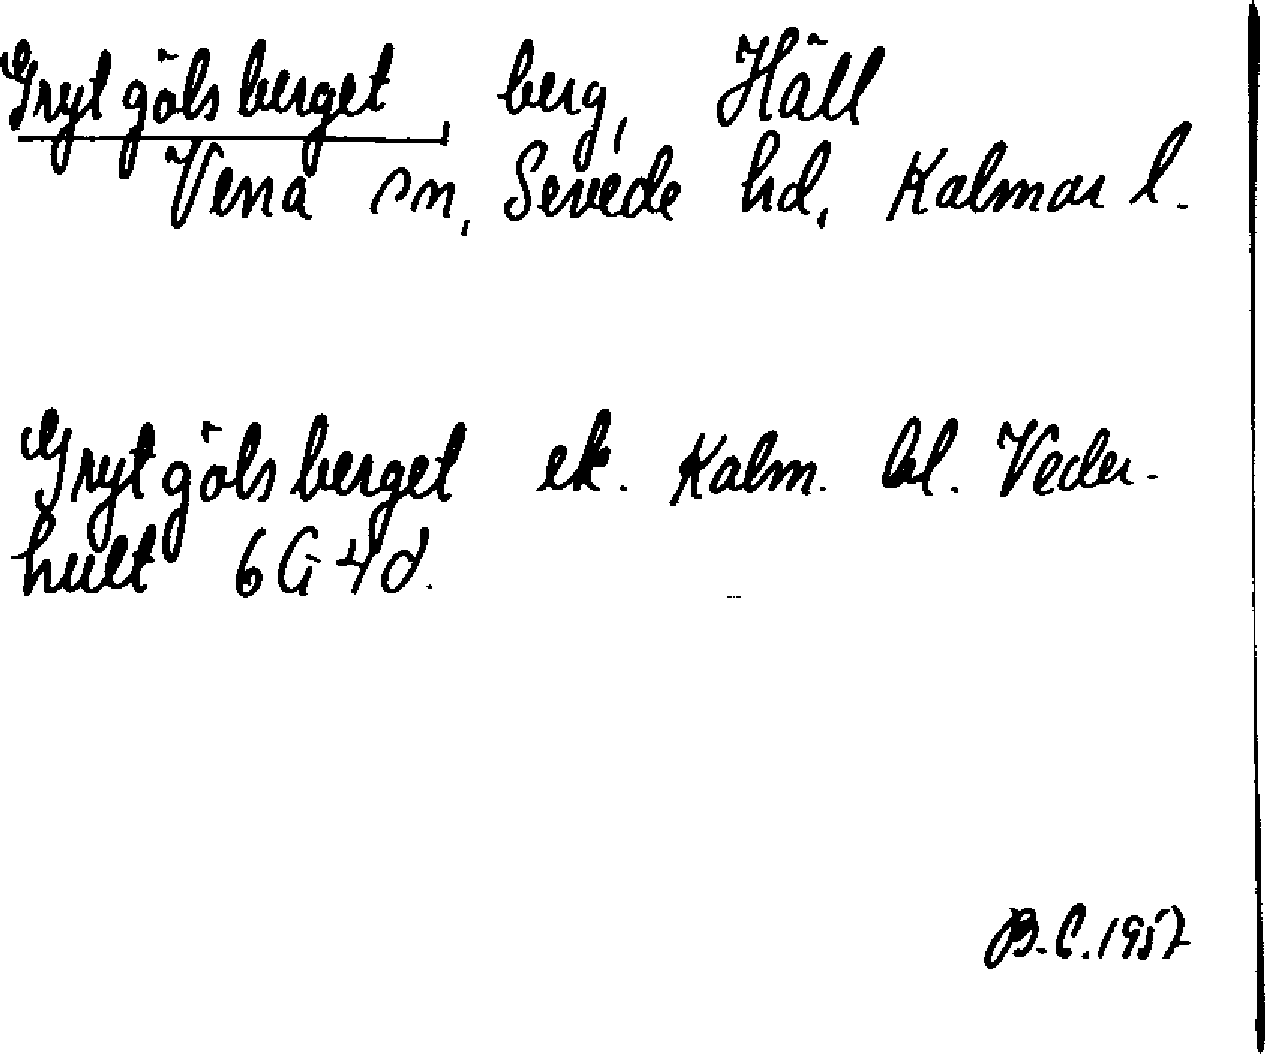 Grytgölsberget, berg, Häll
Vena sn, Sevede hd, Kalmar l.
Grytgölsberget ek. Kalm. bl. Veder-
hult 6G4d.
B.C. 1957